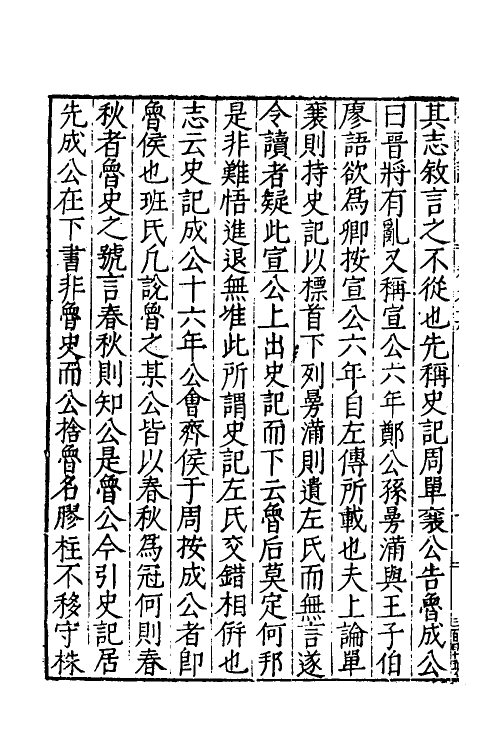 其志敘言之不從也先稱史記周單襄公告魯成公
曰晉將有亂又稱宣公六年鄭公孫曼滿與王子伯
廖語欲爲卿按宣公六年自左傳所載也夫上論單
襄則持史記以標首下列曼滿則遺左氏而無言遂
令讀者疑此宣公上出史記而下云魯后莫定何邦
是非難悟進退無准此所謂史記左氏交錯相倂也
志云史記成公十六年公會齊侯于周按成公者卽
魯侯也班氏凡說魯之某公皆以春秋爲冠何則春
秋者魯史之號言春秋則知公是魯公今引史記居
先成公在下書非魯史而公捨魯名膠柱不移守株